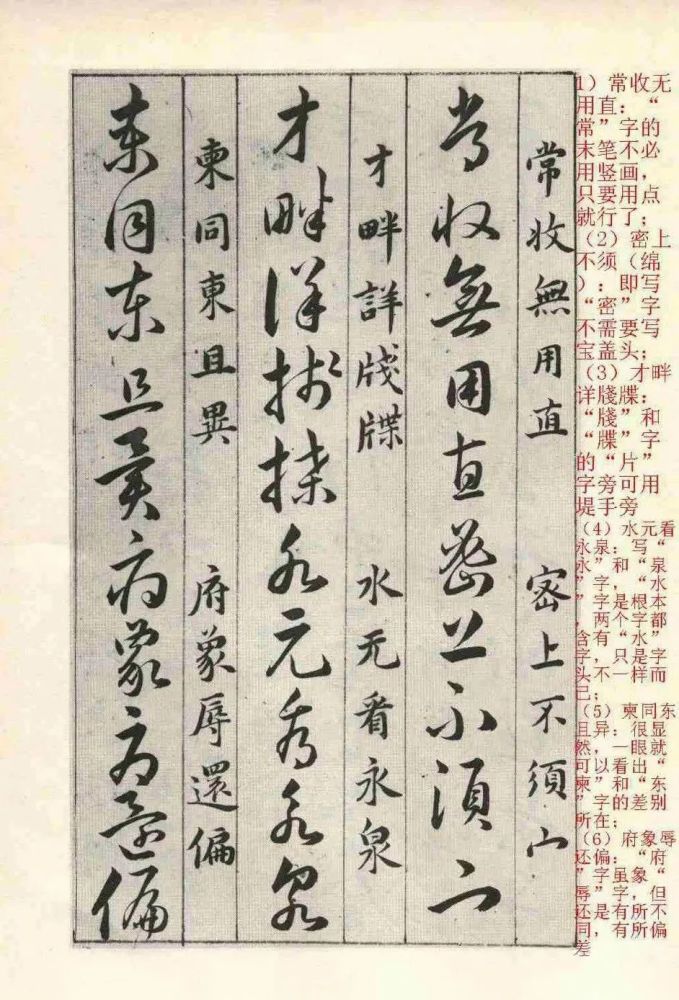 常收無用直 密上不須宀
常收無用直密上不須宀
才畔詳牋牒 水元看永泉
才畔詳牋牒水元看永泉
柬同東且異 府象辱還偏
柬同東且異府象辱還偏
1）常收无
用直：“
常”字的
末笔不必
用竖画，
只要用点
就行了；
（2）密上
不须（绵
）：即写
“密”字
不需要写
宝盖头；
（3）才畔
详牋牒：
“牋”和
“牒”字
的“片”
字旁可用
堤手旁
（4）水元看
永泉：写“
永”和“泉
”字，“水
”字是根本
，两个字都
含有“水”
字，只是字
头不一样而
已；
（5）柬同东
且异：很显
然，一眼就
可以看出“
柬”和“东
”字的差别
所在；
（6）府象辱
还偏：“府
”字虽象“
辱”字，但
还是有所不
同，有所偏
差